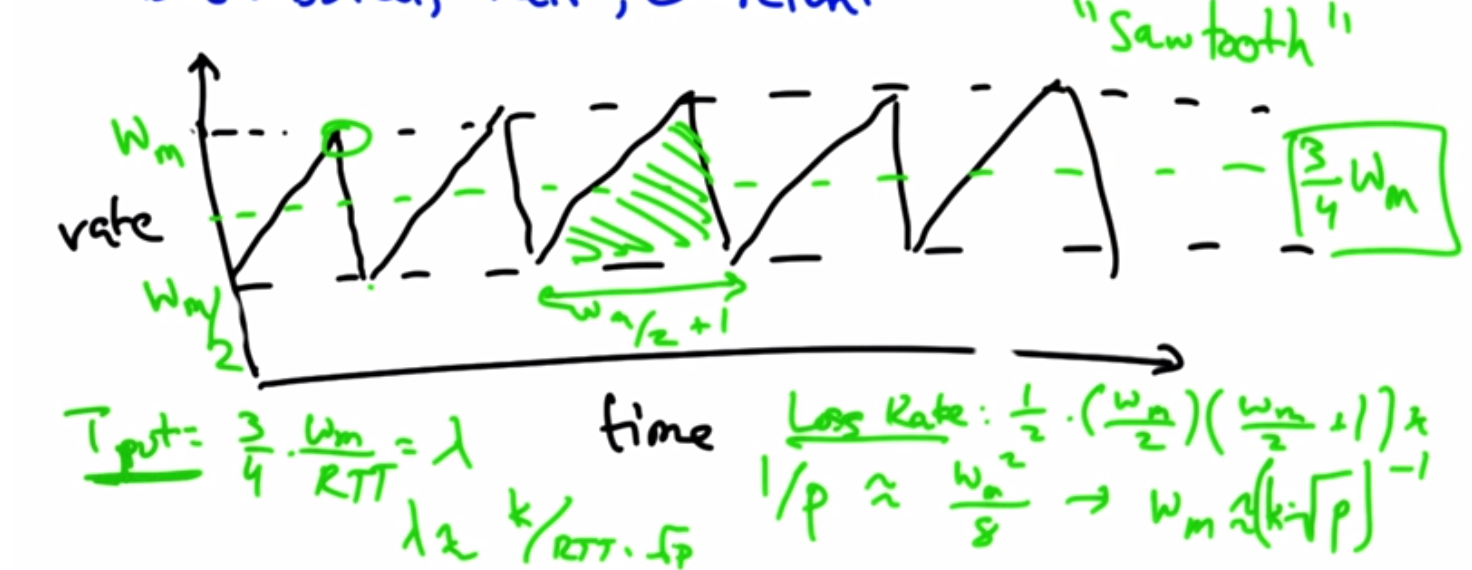 "Sawtooth"
Wm
rate
Wm/2
3/4 Wm
Wm/2 + 1
time
Tput = 3/4 · Wm/RTT = λ
λ ≈ k/RTT · √p
Loss Rate: 1/2 · (Wm/2)(Wm/2 + 1) ≈
1/p ≈ Wm²/8 → Wm ≈ (k·√p)⁻¹